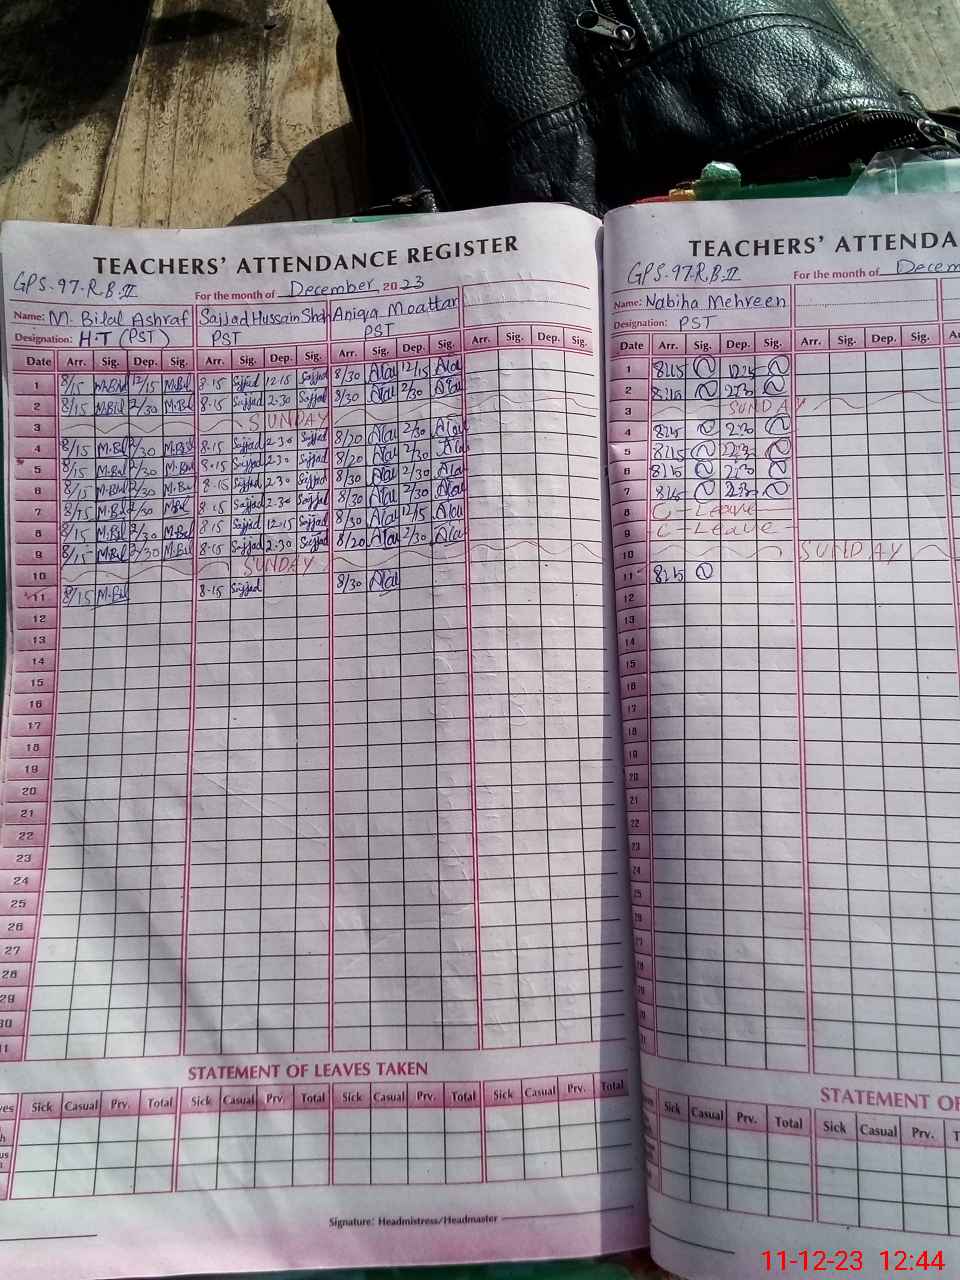 TEACHERS' ATTENDANCE REGISTER
GPS-97-R.B.II
For the month of December, 2023
Name: M. Bilal Ashraf Sajjad Hussain Shah Aniqa Moattar
Designation: H.T (PST) PST PST
Date Arr. Sig. Dep. Sig. Arr. Sig. Dep. Sig. Arr. Sig. Dep. Sig. Arr. Sig. Dep. Sig.
1 8/15 M.Bil 12/15 M.Bil 8-15 Sajjad 12-15 Sajjad 8/30 12/15
2 8/15 M.Bil 2/30 M.Bil 8-15 Sajjad 2-30 Sajjad 8/30 2/30
3 SUNDAY
4 8/15 M.Bil 2/30 M.Bil 8-15 Sajjad 2-30 Sajjad 8/20 2/30
5 8/15 M.Bil 2/30 M.Bil 8-15 Sajjad 2-30 Sajjad 8/20 2/30
6 8/15 M.Bil 2/30 M.Bil 8-15 Sajjad 2-30 Sajjad 8/30 2/30
7 8/15 M.Bil 2/30 M.Bil 8-15 Sajjad 2-30 Sajjad 8/30 2/30
8 8/15 M.Bil 2/30 M.Bil 8-15 Sajjad 12-15 Sajjad 8/30 12/15
9 8/15 M.Bil 2/30 M.Bil 8-15 Sajjad 2-30 Sajjad 8/20 2/30
10 SUNDAY
11 8/15 M.Bil 8-15 Sajjad 8/30
12
13
14
15
16
17
18
19
20
21
22
23
24
25
26
27
28
29
30
STATEMENT OF LEAVES TAKEN
Sick Casual Prv. Total Sick Casual Prv. Total Sick Casual Prv. Total Sick Casual Prv. Total
Signature: Headmistress/Headmaster
TEACHERS' ATTENDA
GPS-97-R.B.II
For the month of Decem
Name: Nabiha Mehreen
Designation: PST
Date Arr. Sig. Dep. Sig. Arr. Sig. Dep. Sig.
1 8:15 12:15
2 8:15 2:30
3 SUNDAY
4 8:15 2:30
5 8:15 2:30
6 8:15 2:30
7 8:15 2:30
8 C-Leave
9 C-Leave
10 SUNDAY
11 8:15
12
13
14
15
16
17
18
19
20
21
22
23
24
25
26
27
28
STATEMENT OF
Sick Casual Prv. Total Sick Casual Prv.
11-12-23 12:44